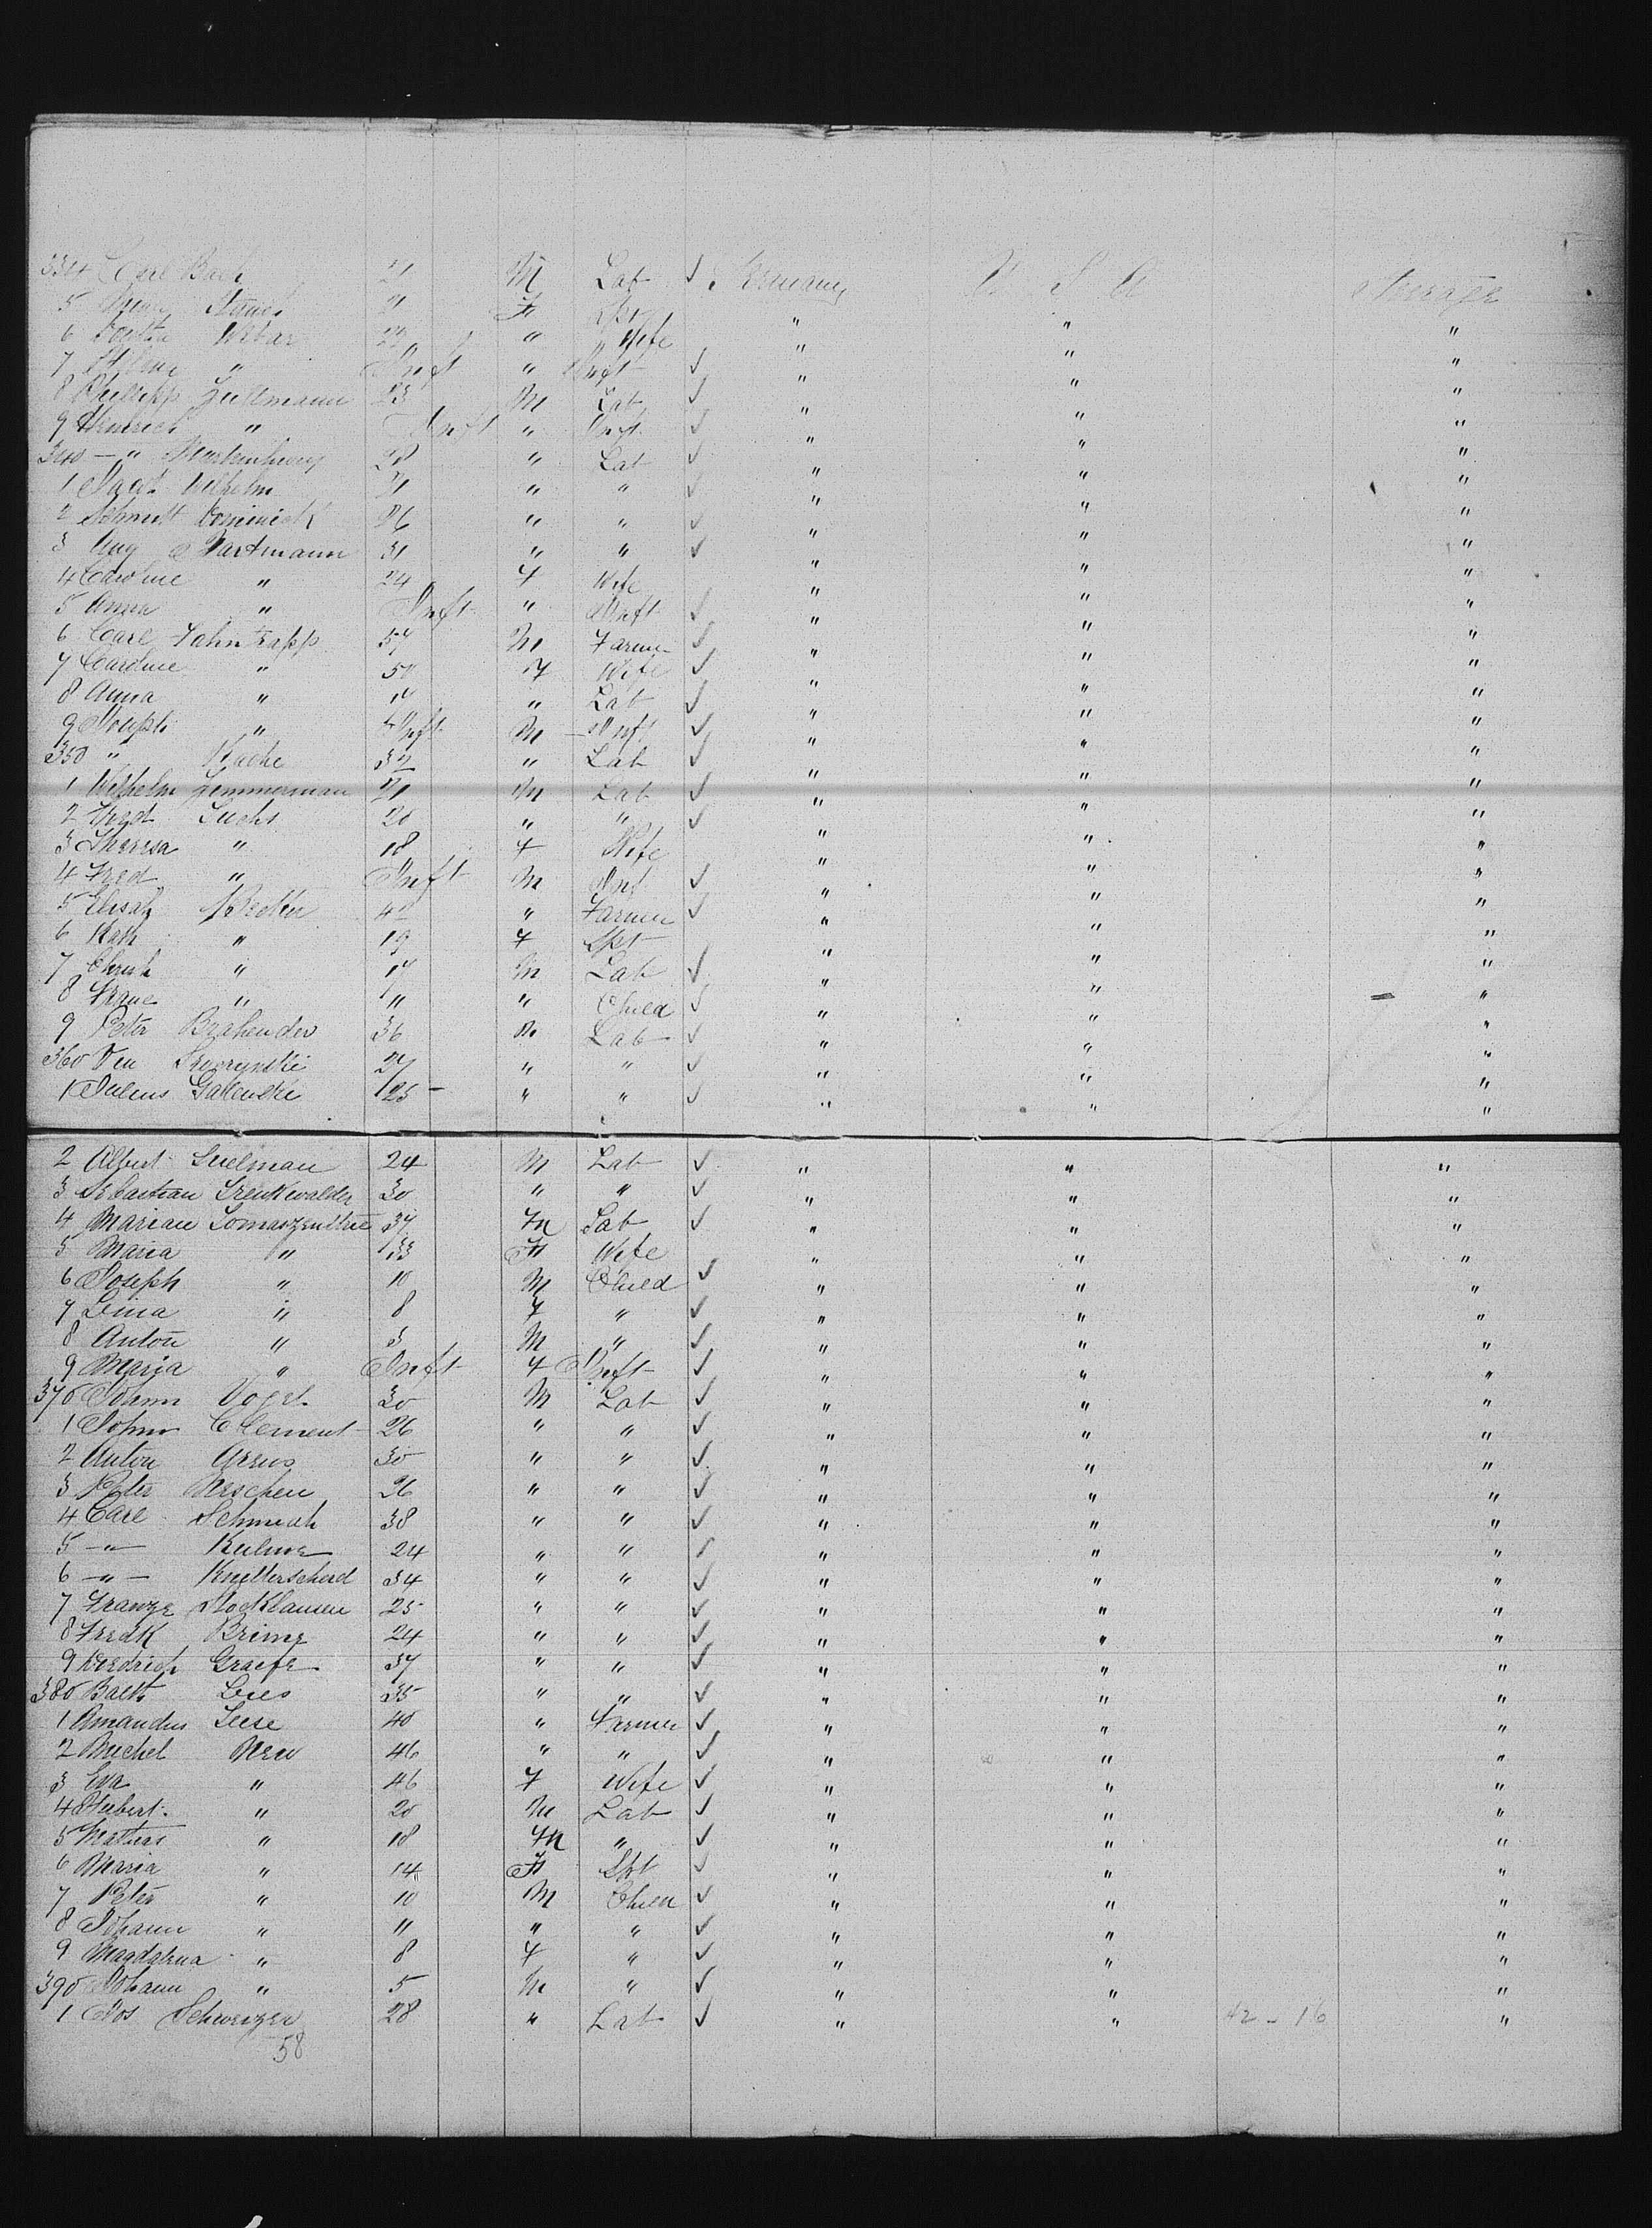 334 Carl 21 M Lab ✓ Germany U S A Steerage
5 21 F Spr " " "
6 Weber 22 " Wife " " "
7 " Inft " Inft ✓ " " "
8 Phillipp 23 M Lab ✓ " " "
9 Heinrich " Inft " Inft ✓ " " "
340 — " 28 " Lab ✓ " " "
1 Wilhelm 21 " " ✓ " " "
2 Schmidt Dominick 26 " " ✓ " " "
3 Aug Hartmann 31 " " ✓ " " "
4 Caroline " 24 F Wife " " "
5 Anna " Inft " Inft ✓ " " "
6 Carl 57 M Farmer ✓ " " "
7 Caroline " 50 F Wife ✓ " " "
8 Anna " 14 " Lab ✓ " " "
9 Joseph " Inft M Inf ✓ " " "
350 " 32 " Lab ✓ " " "
1 Wilhelm Zemmerman 21 M Lab ✓ " " "
2 Fred 20 " " ✓ " " "
3 Theresa " 18 F Wife " " "
4 Fred " Inft M Inf ✓ " " "
5 " Farmer ✓ " " "
6 Kath " 19 F Spt " " "
7 Christ " 17 M Lab ✓ " " "
8 Franc " 11 " Child ✓ " " "
9 Peter Brahender 36 M Lab ✓ " " "
360 27 " " ✓ " " "
1 Julius Galewski 25 " " ✓ " " "
2 Albert 24 M Lab ✓ " " "
3 Sebastian Trenkwalder 30 " " ✓ " " "
4 Marian 37 M Lab ✓ " " "
5 Maria " 33 F Wife " " "
6 Joseph " 10 M Child ✓ " " "
7 Lina " 8 F " ✓ " " "
8 Anton " 3 M " ✓ " " "
9 Marja " Inft F Inft ✓ " " "
370 Johann Vogel 30 M Lab ✓ " " "
1 John Clement 26 " " ✓ " " "
2 Anton 30 " " ✓ " " "
3 Peter Nerschen 26 " " ✓ " " "
4 Carl Schmidt 38 " " ✓ " " "
5 — " — Kuhne 24 " " ✓ " " "
6 — " — Knitterscheid 34 " " ✓ " " "
7 Franze Stocklausen 25 " " ✓ " " "
8 Fredk Brime 24 " " ✓ " " "
9 Diedrich Graefe 37 " " ✓ " " "
380 Balth Lies 35 " " ✓ " " "
1 Amandus Leese 40 " Farmer ✓ " " "
2 Michel Neu 46 " " ✓ " " "
3 Eva " 46 F Wife ✓ " " "
4 Hubert " 20 M Lab ✓ " " "
5 Mathias " 18 M " ✓ " " "
6 Maria " 14 F Spt ✓ " " "
7 Peter " 10 M Child ✓ " " "
8 Johann " 11 " " ✓ " " "
9 Magdalena " 8 F " ✓ " " "
390 Johann " 5 M " ✓ " " "
1 Jos Schweizer 28 " Lab ✓ " " 42 - 16 "
58